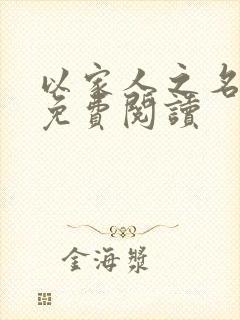 以家人之名
免費閱讀
金海槳